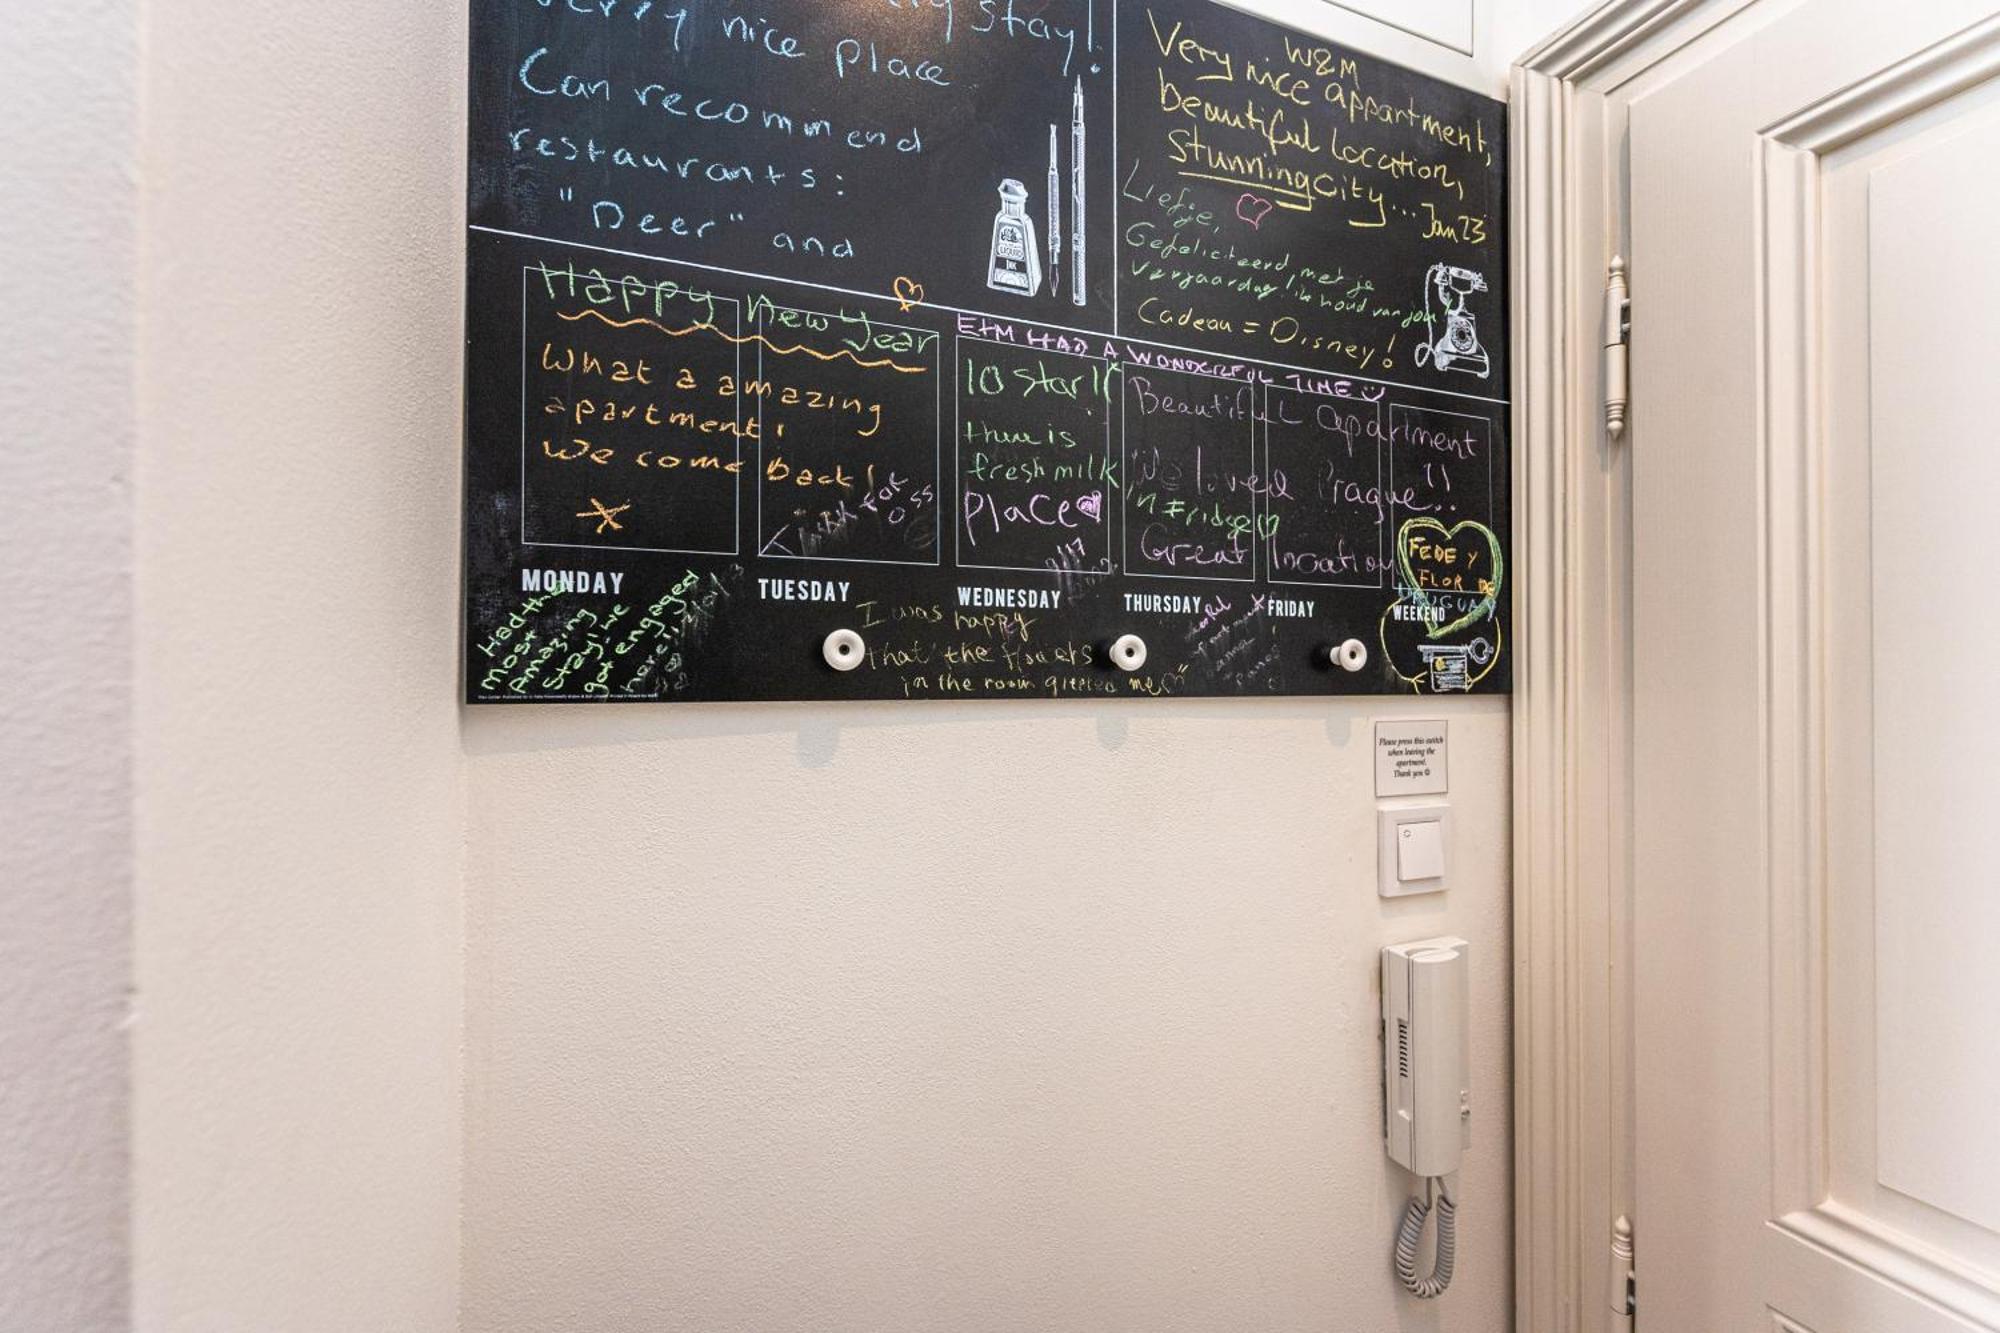 stay!
very nice place
Can recommend
restaurants:
"Deer" and
W&M
Very nice appartment,
beautiful location,
Stunning city... Jan 23
Liefje,
Gefeliciteerd met je
verjaardag! ik houd van jou!
Cadeau = Disney!
Happy New Year
What a amazing
apartment!
We come back!
E+M HAD A WONDERFUL TIME
10 star!!
there is
fresh milk
in Fridge
Place
Beautiful apartment
!!
We loved Prague!!
Great location
FEDE Y
FLOR DE
URUGUAY
MONDAY
TUESDAY
WEDNESDAY
THURSDAY
FRIDAY
WEEKEND
Had the
most
Amazing
Stay! we
got engaged
here!!
I was happy
that the flowers
in the room greeted me
LIQUID
INK
Please press this switch
when leaving the
apartment.
Thank you ☺